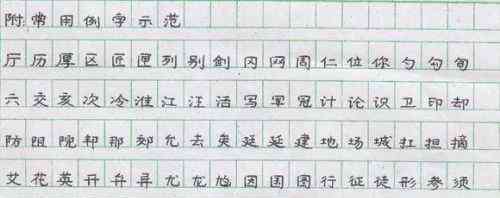 附常用例字示范
厅历厚区匠匣列别剑冈网周仁位你勺句旬
六交亥次冷淮江汪活写军冠计论识卫印却
防阻院邦那郊允去奥廷延建地场城扛担摘
艾花英丹弁异尤龙尬因国图行征徒形参须